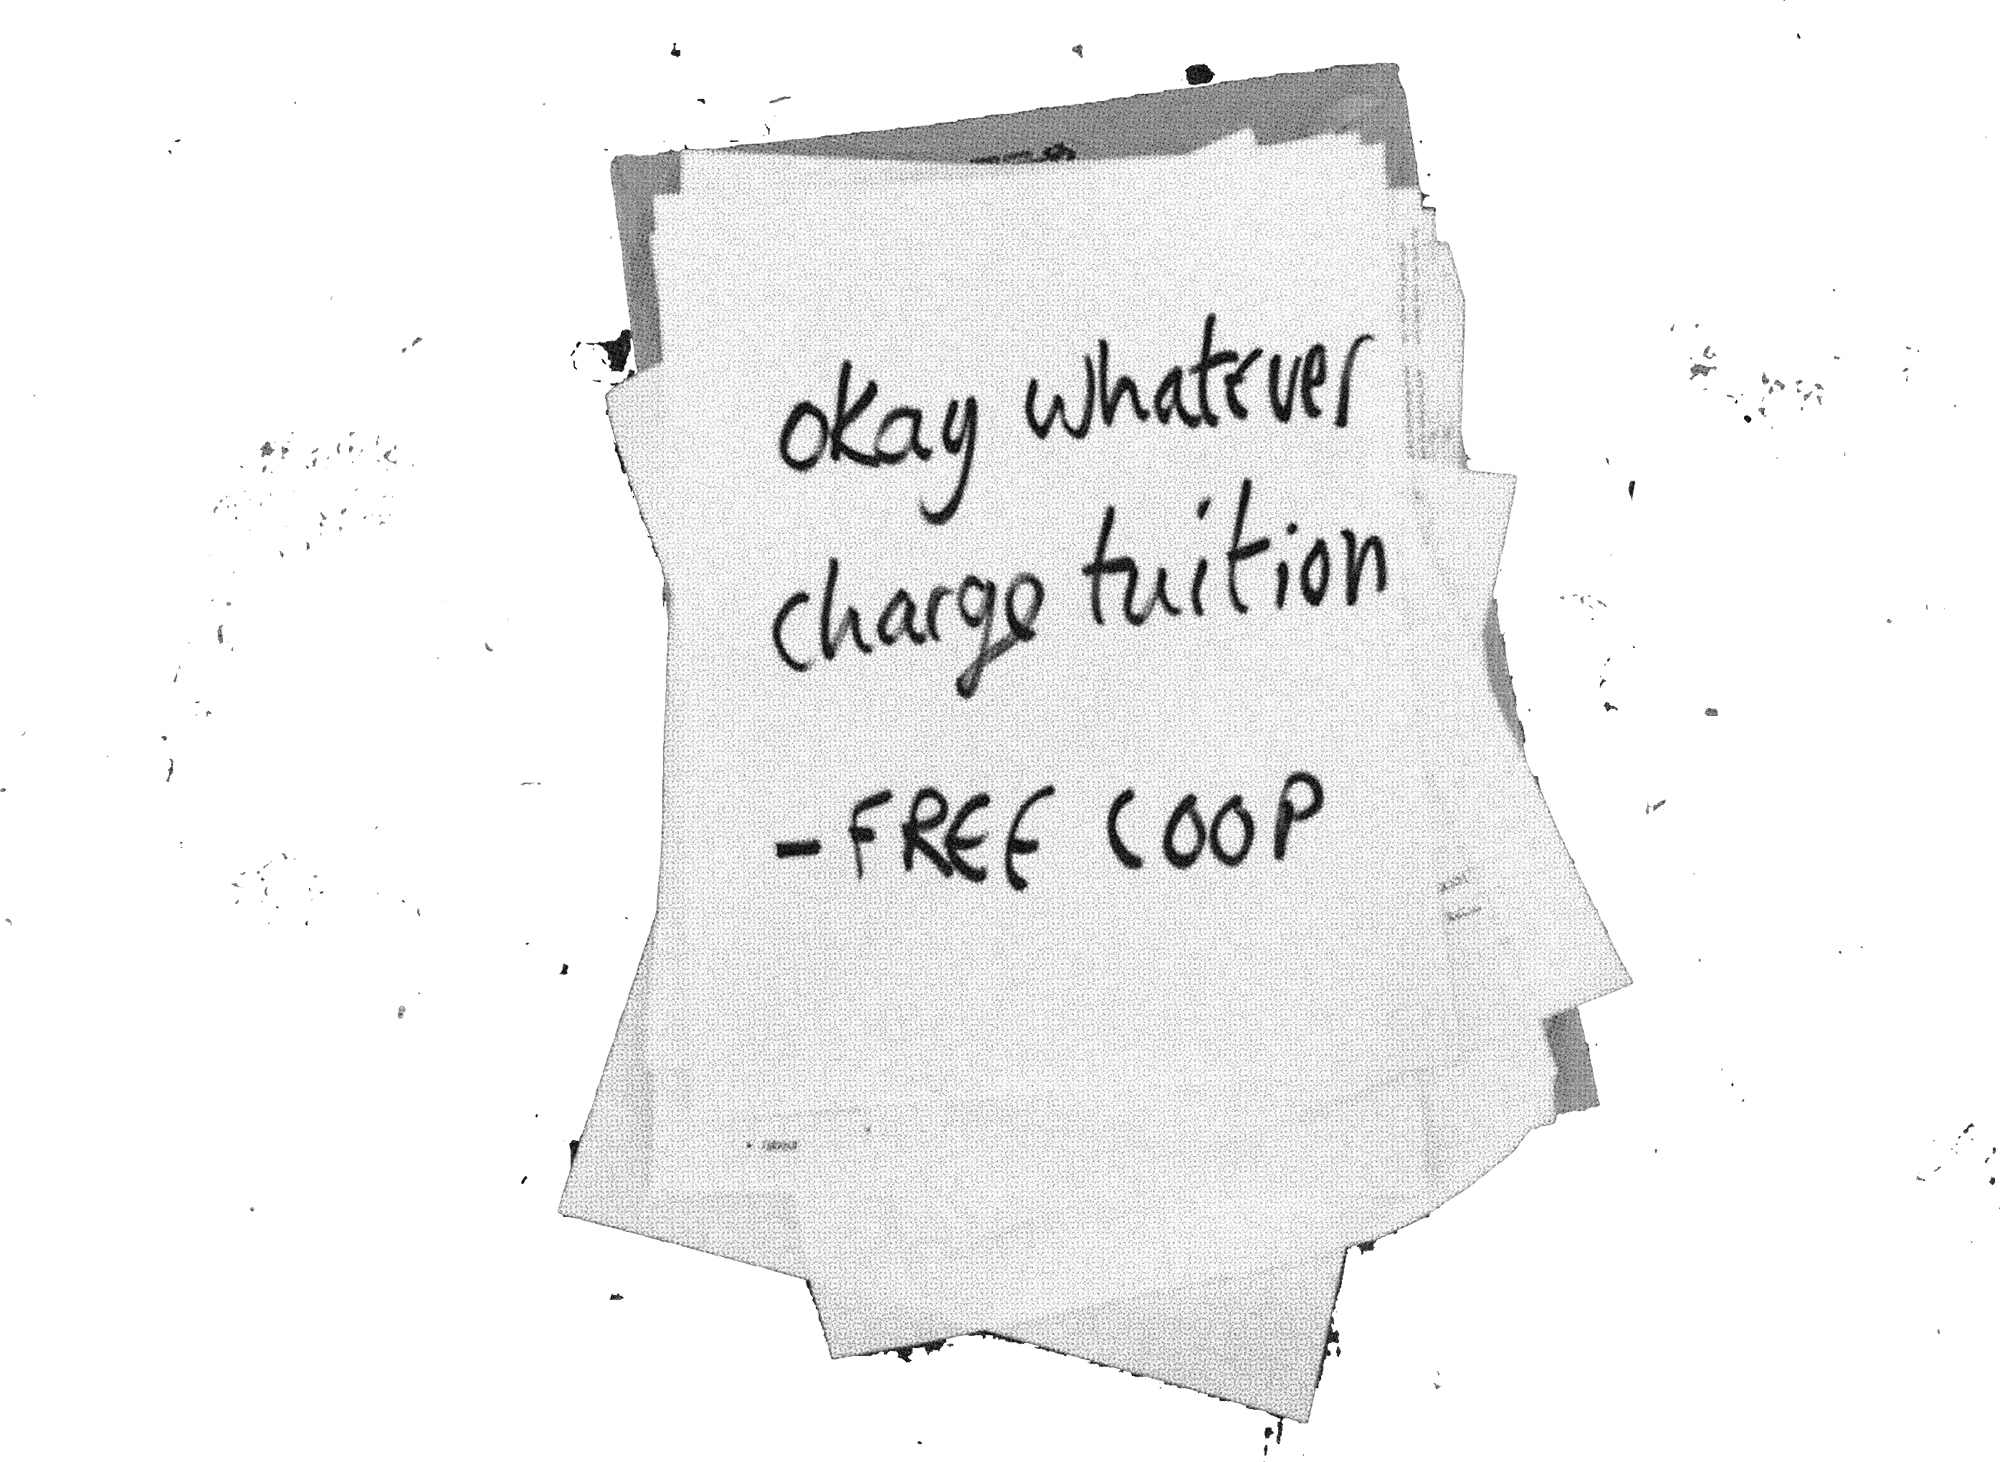 okay whatever
charge tuition
- FREE COOP